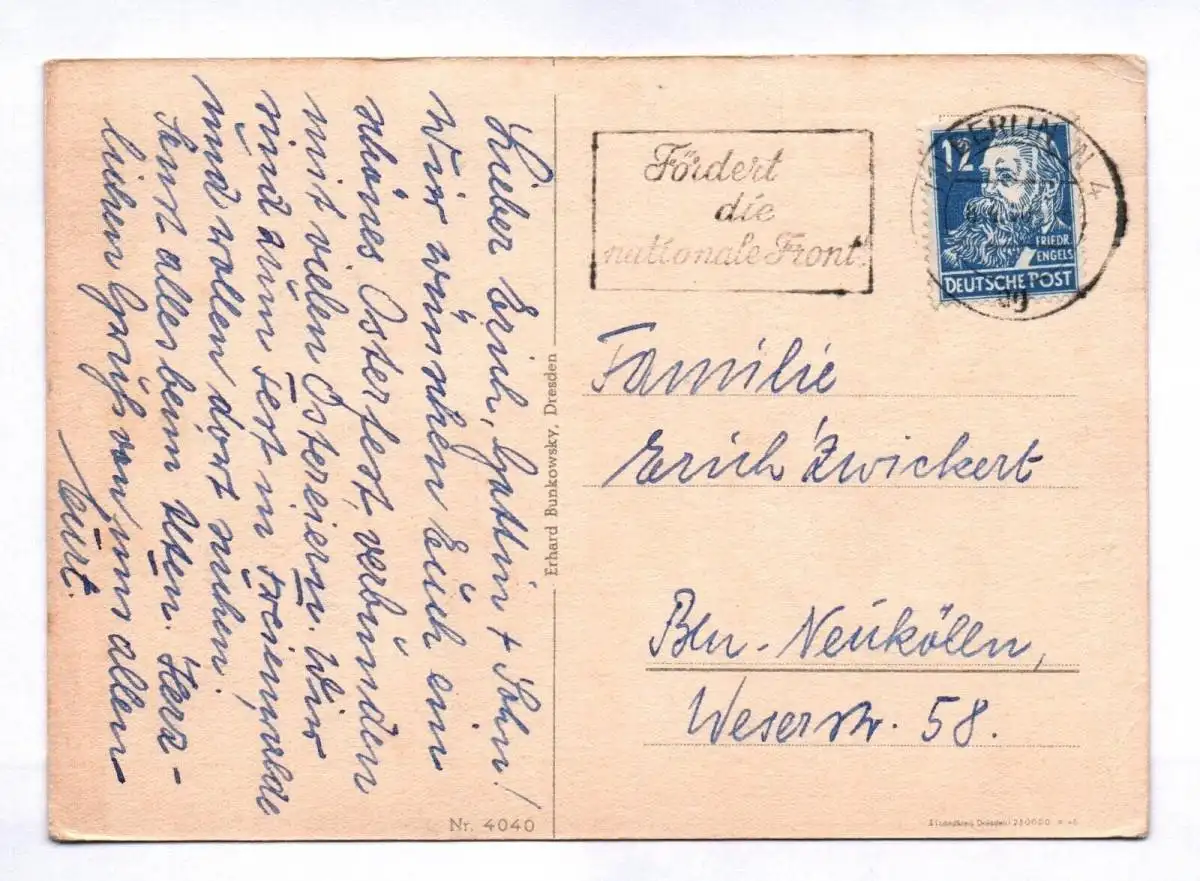 Lieber Erich, Gattin + Sohn!
Wir wünschen Euch ein
schönes Osterfest, verbunden
mit vielen Ostereiern. Wir
sind zum Fest in Freienwalde
und wollen dort ruhen.
Sonst aller beim Alten. Herz-
lichen Gruß von uns allen
Curt.
Erhard Bunkowsky, Dresden
Nr. 4040
Fördert
die
nationale Front!
BERLIN N 4
12
FRIEDR.
ENGELS
DEUTSCHE POST
Familie
Erich Zwickert
Bln.-Neukölln,
Weserstr. 58.